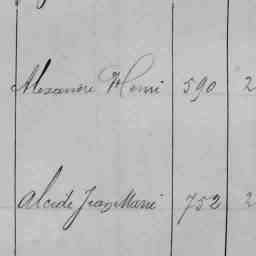 Alexandre Henri 590 2
Alcide Jean Marie 752 2